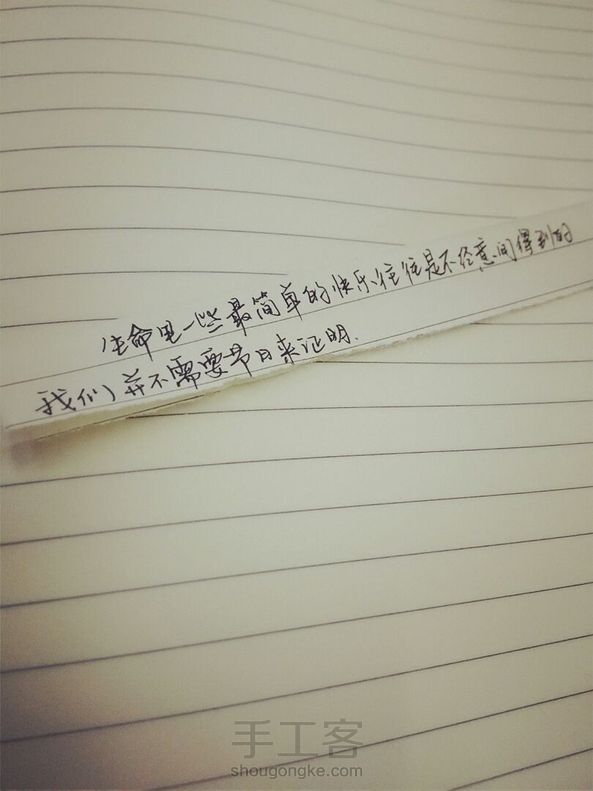 生命里一些最简单的快乐、往往是不经意间得到的
我们并不需要节日来证明.
手工客
shougongke.com